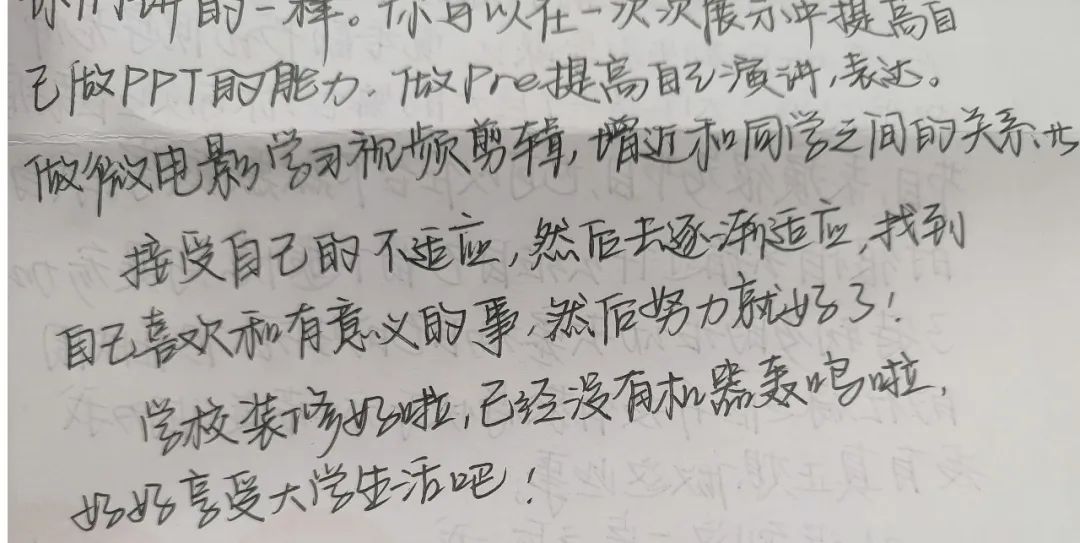 你们讲的一样。你可以在一次次展示中提高自
己做PPT的能力. 做Pre提高自己演讲,表达。
做微电影学习视频剪辑,增近和同学之间的关系.
接受自己的不适应,然后去逐渐适应,找到
自己喜欢和有意义的事,然后努力就好了!
学校装修好啦,已经没有机器轰鸣啦,
好好享受大学生活吧!